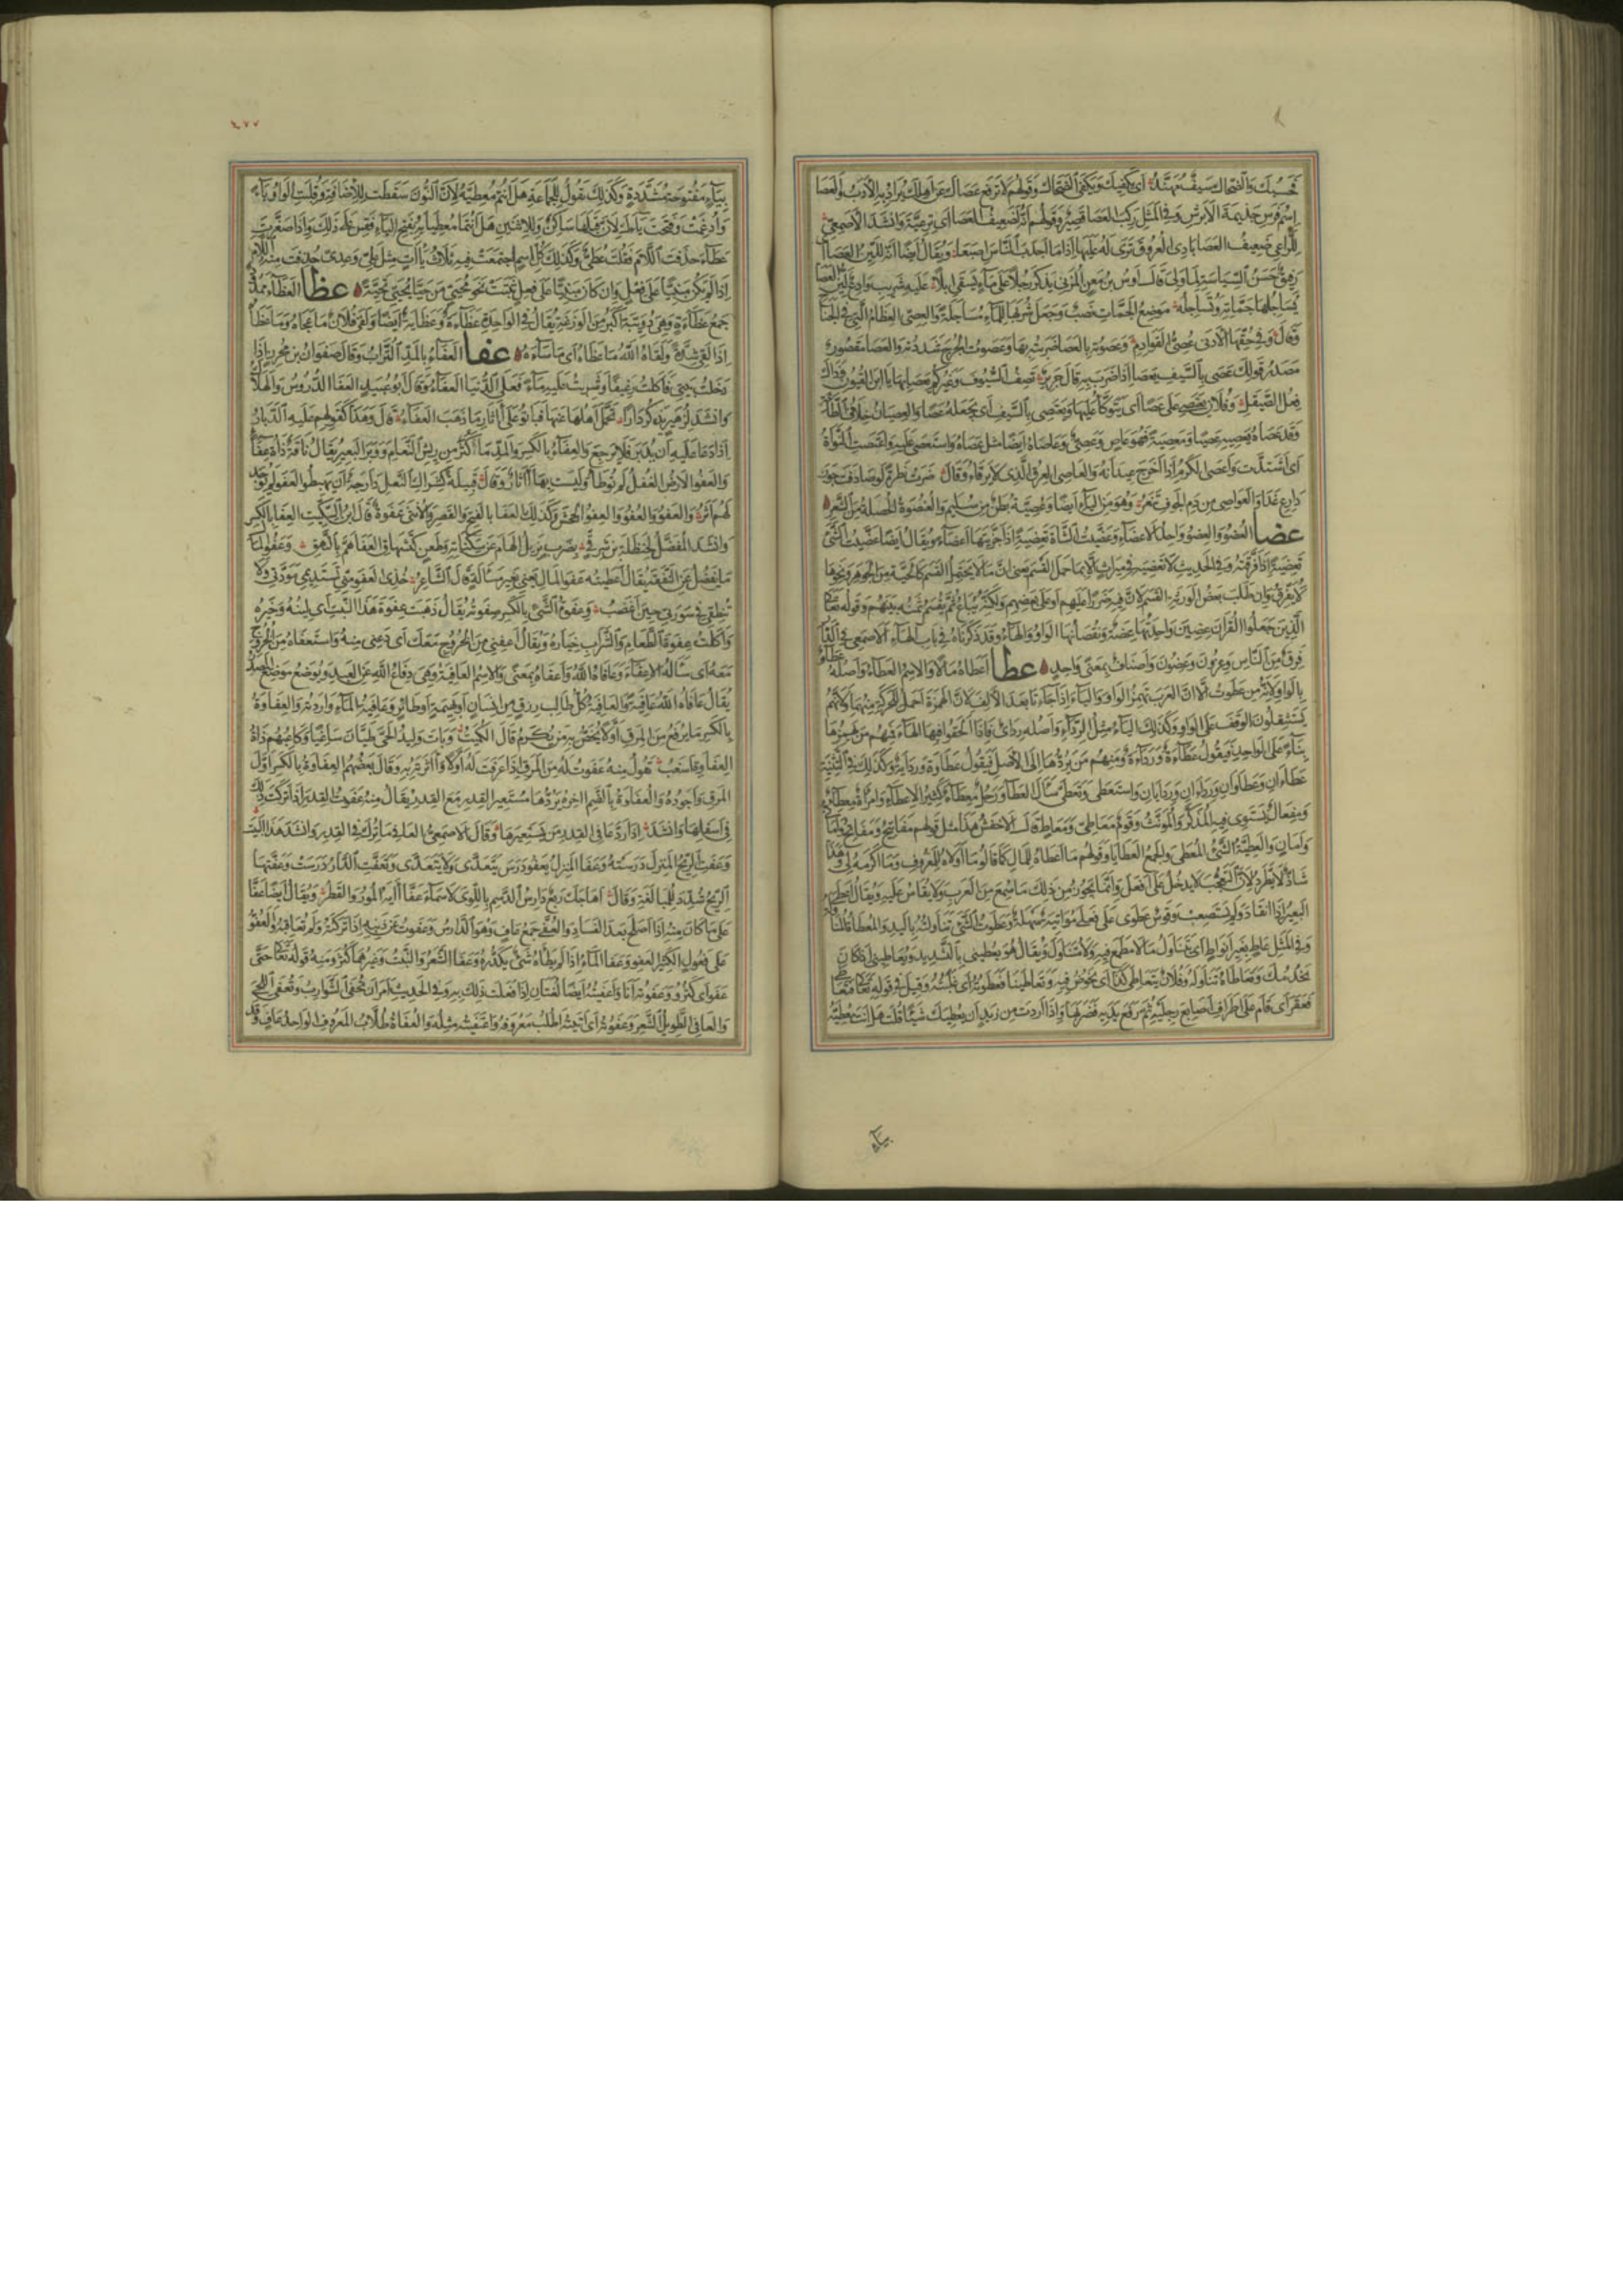 فحسبك والضحاك سيف مهند أي يكفيك ويكفي الضحاك وقولهم لا ترفع عصاك عن أهلك يراد به الأدب والعصا
اسم فرس جذيمة الأبرش وفي المثل ركب العصا قصير وقولهم إنه لضعيف العصا أي ترعية وأنشد الأصمعي
للراعي ضعيف العصا بادي العروق ترى له عليها إذا ما أجدب الناس إصبعا ويقال أيضا إنه للين العصا أي
رفيق حسن السياسة لما ولي قال أوس بن معن المزني يذكر رجلا على ماء يسقي إبلا عليه شريب وادع لين العصا
يساجلها جماته وتساجله موضع الجمات نصب وجعل شربها للماء مساجلة والعصي العظام التي في الجناح
وقال وفي حقها الأدنى عصي القوادم وعصوته بالعصا ضربته بها وعصوت الجرح شددته والعصا مقصور
مصدر قولك عصي بالسيف يعصا إذا ضرب به قال جرير تصف السيوف وغيركم يعصا بها يا ابن القيون وذاك
فعل الصيقل وفلان يعتصي على عصا أي يتوكأ عليها ويعتصي بالسيف أي يجعله عصا والعصيان خلاف الطاعة
وقد عصاه يعصيه عصيا ومعصية فهو عاص وعصي وعاصاه أيضا مثل عصاه واستعصى عليه واعتصت النواة
أي اشتدت وأعصى الكرم إذا أخرج عيدانه والعاصي العرق الذي لا يرقأ وقال صرت نظرة لو صادفت جوز
دارع غدا والعواصي من دم الجوف تنعر وهو من الياء أيضا وعصية بطن من سليم والعنصوة الخصلة من الشعر
عضا العضو والعضو واحد الأعضاء وعضيت الشاة تعضية إذا جزيتها أعضاء ويقال أيضا عضيت الشيء
تعضية إذا فرقته وفي الحديث لا تعضية في ميراث إلا فيما حمل القسم يعني أن ما لا يحتمل القسم كالحبة من الجوهر ونحوها
لا يفرق وإن طلب بعض الورثة القسم لأن فيه ضررا عليهم أو على بعضهم ولكنه يباع ثم يقسم ثمنه بينهم وقوله تعالى
الذين جعلوا القرآن عضين واحدتها عضة ونقصانها الواو والهاء وقد ذكرناه في باب الهاء الأصمعي في الدار
فرق من الناس وعزون وعضون وأصناف بمعنى واحد عطا أعطاه مالا والاسم العطاء وأصله عطاو
بالواو لأنه من عطوت إلا أن العرب تهمز الواو والياء إذا جاءتا بعد الألف لأن الهمزة أحمل للحركة منهما ولأنهم
يستثقلون الوقف على الواو وكذلك الياء مثل الرداء وأصله رداي فإذا ألحقوا فيها الهاء فمنهم من يهمزها
بناء على الواحد فيقول عطاءة ورداءة ومنهم من يردها إلى الأصل فيقول عطاوة ورداية وكذلك في التثنية
عطاءان وعطاوان ورداءان وردايان واستعطى وتعطى سأل العطاء ورجل معطاء كثير الإعطاء وامرأة معطاء
ومفعال يستوي فيه المذكر والمؤنث وقوم معاطي ومعاط قال الأخفش هذا مثل قولهم مفاتيح ومفاتح وأماني
وأمان والعطية الشيء المعطى والجمع العطايا وقولهم ما أعطاه للمال كما قالوا ما أولاه للمعروف وما أكرمه لي وهذا
شاذ لا يطرد لأن التعجب لا يدخل على أفعل وإنما يجوز من ذلك ما سمع من العرب ولا يقاس عليه ويقال أعطى
البعير إذا انقاد ولم يستصعب وقوس عطوى على فعلى مواتية سهلة وعطوت الشيء تناولته باليد والمعاطاة المناولة
وفي المثل عاط بغير أنواط أي يتناول ما لا مطمع فيه ولا متناول ويقال هو يعطيني بالتشديد ويعاطيني إذا كان
يخدمك وتعاطاه تناوله وفلان يتعاطى كذا أي يخوض فيه وتعاطينا فعطوته أي غلبته وقيل في قوله تعالى فتعاطى
فعقر أي قام على أطراف أصابع رجليه ثم رفع يديه فضربها وإذا أردت من زيد أن يعطيك شيئا قلت هل أنت معطيه
بياء
٤٧٧
بياء مفتوحة مشددة وكذلك تقول للجماعة هل أنتم معطيه لأن النون سقطت للإضافة وقلبت الواو ياء
وأدغمت وفتحت ياءك لأن قبلها ساكن وللاثنين هل أنتما معطياه بفتح الياء فقس على ذلك وإذا صغرت
عطاء حذفت اللام فقلت عطي وكذلك كل اسم اجتمعت فيه ثلاث ياءات مثل علي وعدي حذفت منه اللام
إذا لم يكن مبنيا على فعل وإن كان مبنيا على فعل ثبتت نحو محيي من حيا يحيي تحية عظا العظاء ممدود
جمع عظاءة وهي دويبة أكبر من الوزغة يقال في الواحدة عظاءة وعظاية أيضا ولقي فلان ما عجاه وما عظاه
إذا لقي شدة ولقاه الله ما عظاه أي ما ساءه عفا العفاء بالمد التراب وقال صفوان بن محرز إذا
دخلت بيتي فأكلت رغيفا وشربت عليه ماء فعلى الدنيا العفاء وقال أبو عبيد العفاء الدروس والهلاك
وأنشد لزهير يذكر دارا تحمل أهلها عنها فبانوا على آثار ما ذهب العفاء قال وهذا كقولهم عليه الدبار
إذا دعا عليه أن يدبر فلا يرجع والعفاء بالكسر والمد ما كثر من ريش النعام ووبر البعير يقال ناقة ذات عفاء
والعفو الأرض الغفل لم توطأ وليست بها آثار وقال قبيلة كشراك النعل دارجة إن يهبطوا العفو لم يوجد
لهم أثر والعفو والعفو والعفو الجحش وكذلك العفا بالفتح والقصر والأنثى عفوة قال ابن السكيت العفا بالكسر
وأنشد المفضل لحنظلة بن شرقي بضرب يزيل الهام عن سكناته وطعن كتشهاق العفا هم بالنهق وعفو المال
ما يفضل عن النفقة يقال أعطيته عفو المال يعني بغير مسألة قال الشاعر خذي العفو مني تستديمي مودتي ولا
تنطقي في سورتي حين أغضب وعفوة الشيء بالكسر صفوته يقال ذهبت عفوة هذا النبت أي لينه وخيره
وأكلت عفوة الطعام والشراب خياره ويقال أعفني من الخروج معك أي دعني منه واستعفاه من الخروج
معه أي سأله الإعفاء وعافاه الله وأعفاه بمعنى والاسم العافية وهي دفاع الله عن العبد ويوضع موضع المصدر
يقال عافاه الله عافية والعافية كل طالب رزق من إنسان أو بهيمة أو طائر وعافية الماء واردته والعفاوة
بالكسر ما يرفع من المرق أولا يخص به من يكرم قال الكميت وبات وليد الحي طيان ساغبا وكاعبهم ذات
العفاوة أسغب تقول منه عفوت له من المرق إذا غرفت له أولا وآثرته به وقال بعضهم العفاوة بالكسر أول
المرق وأجوده والعفاوة بالضم آخره يردها مستعير القدر مع القدر يقال منه عفوت القدر إذا تركت ذلك
في أسفلها وأنشد إذا رد عافي القدر من يستعيرها وقال الأصمعي العافي ما ترك في القدر وأنشد هذا البيت
وعفت الريح المنزل درسته وعفا المنزل يعفو درس يتعدى ولا يتعدى وتعفت الدار درست وعفتها
الريح شدد للمبالغة وقال أهاجك ربع دارس الرسم باللوى لأسماء عفا آيه المور والقطر ويقال أيضا عفا
على ما كان منه إذا أصلح بعد الفساد والعفي جمع عاف وهو الدارس وعفوت عن ذنبه إذا تركته ولم تعاقبه والعفو
على فعول الكثير العفو وعفا الماء إذا لم يطأه شيء يكدره وعفا الشعر والنبت وغيرهما كثر ومنه قوله تعالى حتى
عفوا أي كثروا وعفوته أنا وأعفيته أيضا لغتان إذا فعلت ذلك به وفي الحديث أمر أن تحفى الشوارب وتعفى اللحى
والعافي الطويل الشعر وعفوته أي أتيته أطلب معروفه واعتفيته مثله والعفاة طلاب المعروف الواحد عاف وقد